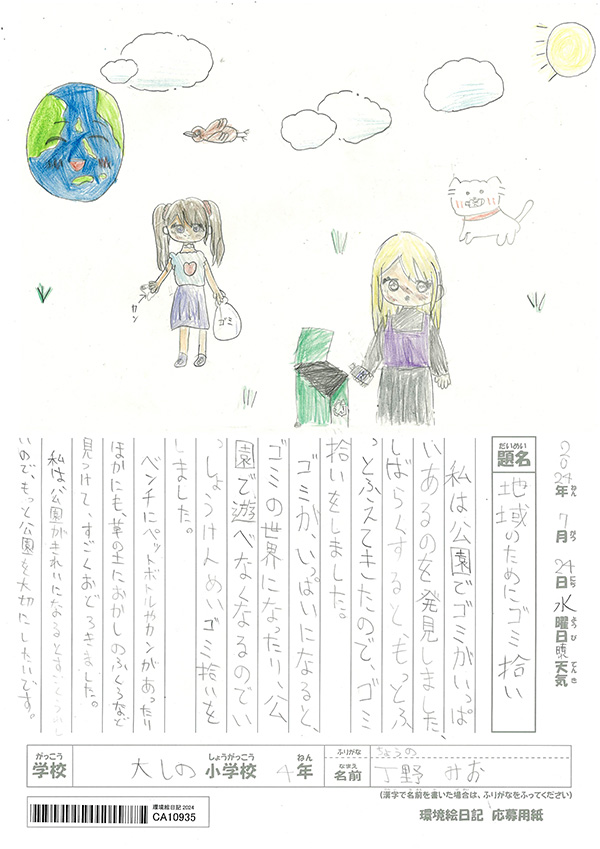 カン
ゴミ
2024年 7月 24日 水曜日 天気
ねん がつ にち ようび てんき
だいめい
題名
地域のためにゴミ拾い
私は公園でゴミがいっぱ
いあるのを発見しました、
しばらくすると、もっとふ
っとふえてきたので、ゴミ
拾いをしました。
ゴミが、いっぱいになると、
ゴミの世界になったり、公
園で遊べなくなるのでい
っしょうけんめいゴミ拾いを
しました。
ベンチにペットボトルやカンがあったり
ほかにも、草の上におかしのふくろなど
見つけて、すごくおどろきました。
私は、公園がきれいになるとすごくうれし
いので、もっと公園を大切にしたいです。
がっこう
学校
大しの
しょうがっこう
小学校
4
ねん
年
ふりがな
ちょうの
なまえ
名前
丁野 みお
(漢字で名前を書いた場合は、ふりがなをふってください)
環境絵日記 2024
CA10935
環境絵日記 応募用紙